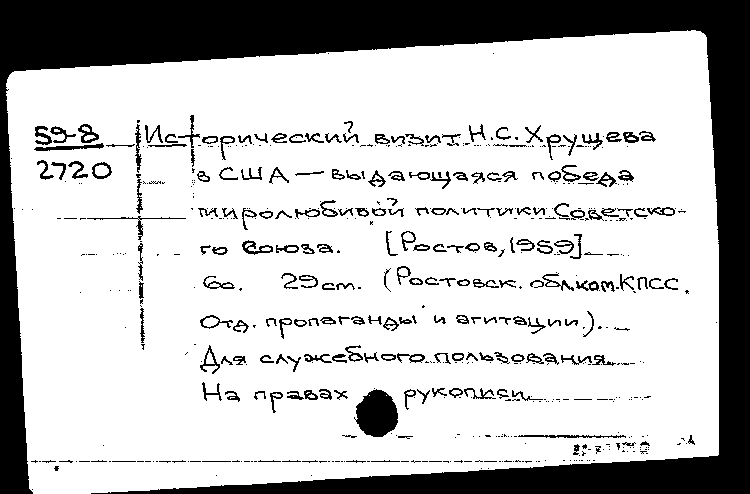 59-8 Исторический визит Н.С. Хрущева
2720 в США — выдающаяся победа
миролюбивой политики Советско-
го Союза. [Ростов, 1959]
6с. 29см. (Ростовск. обл.ком.КПСС.
Отд. пропаганды и агитации).
Для служебного пользования.
На правах рукописи.